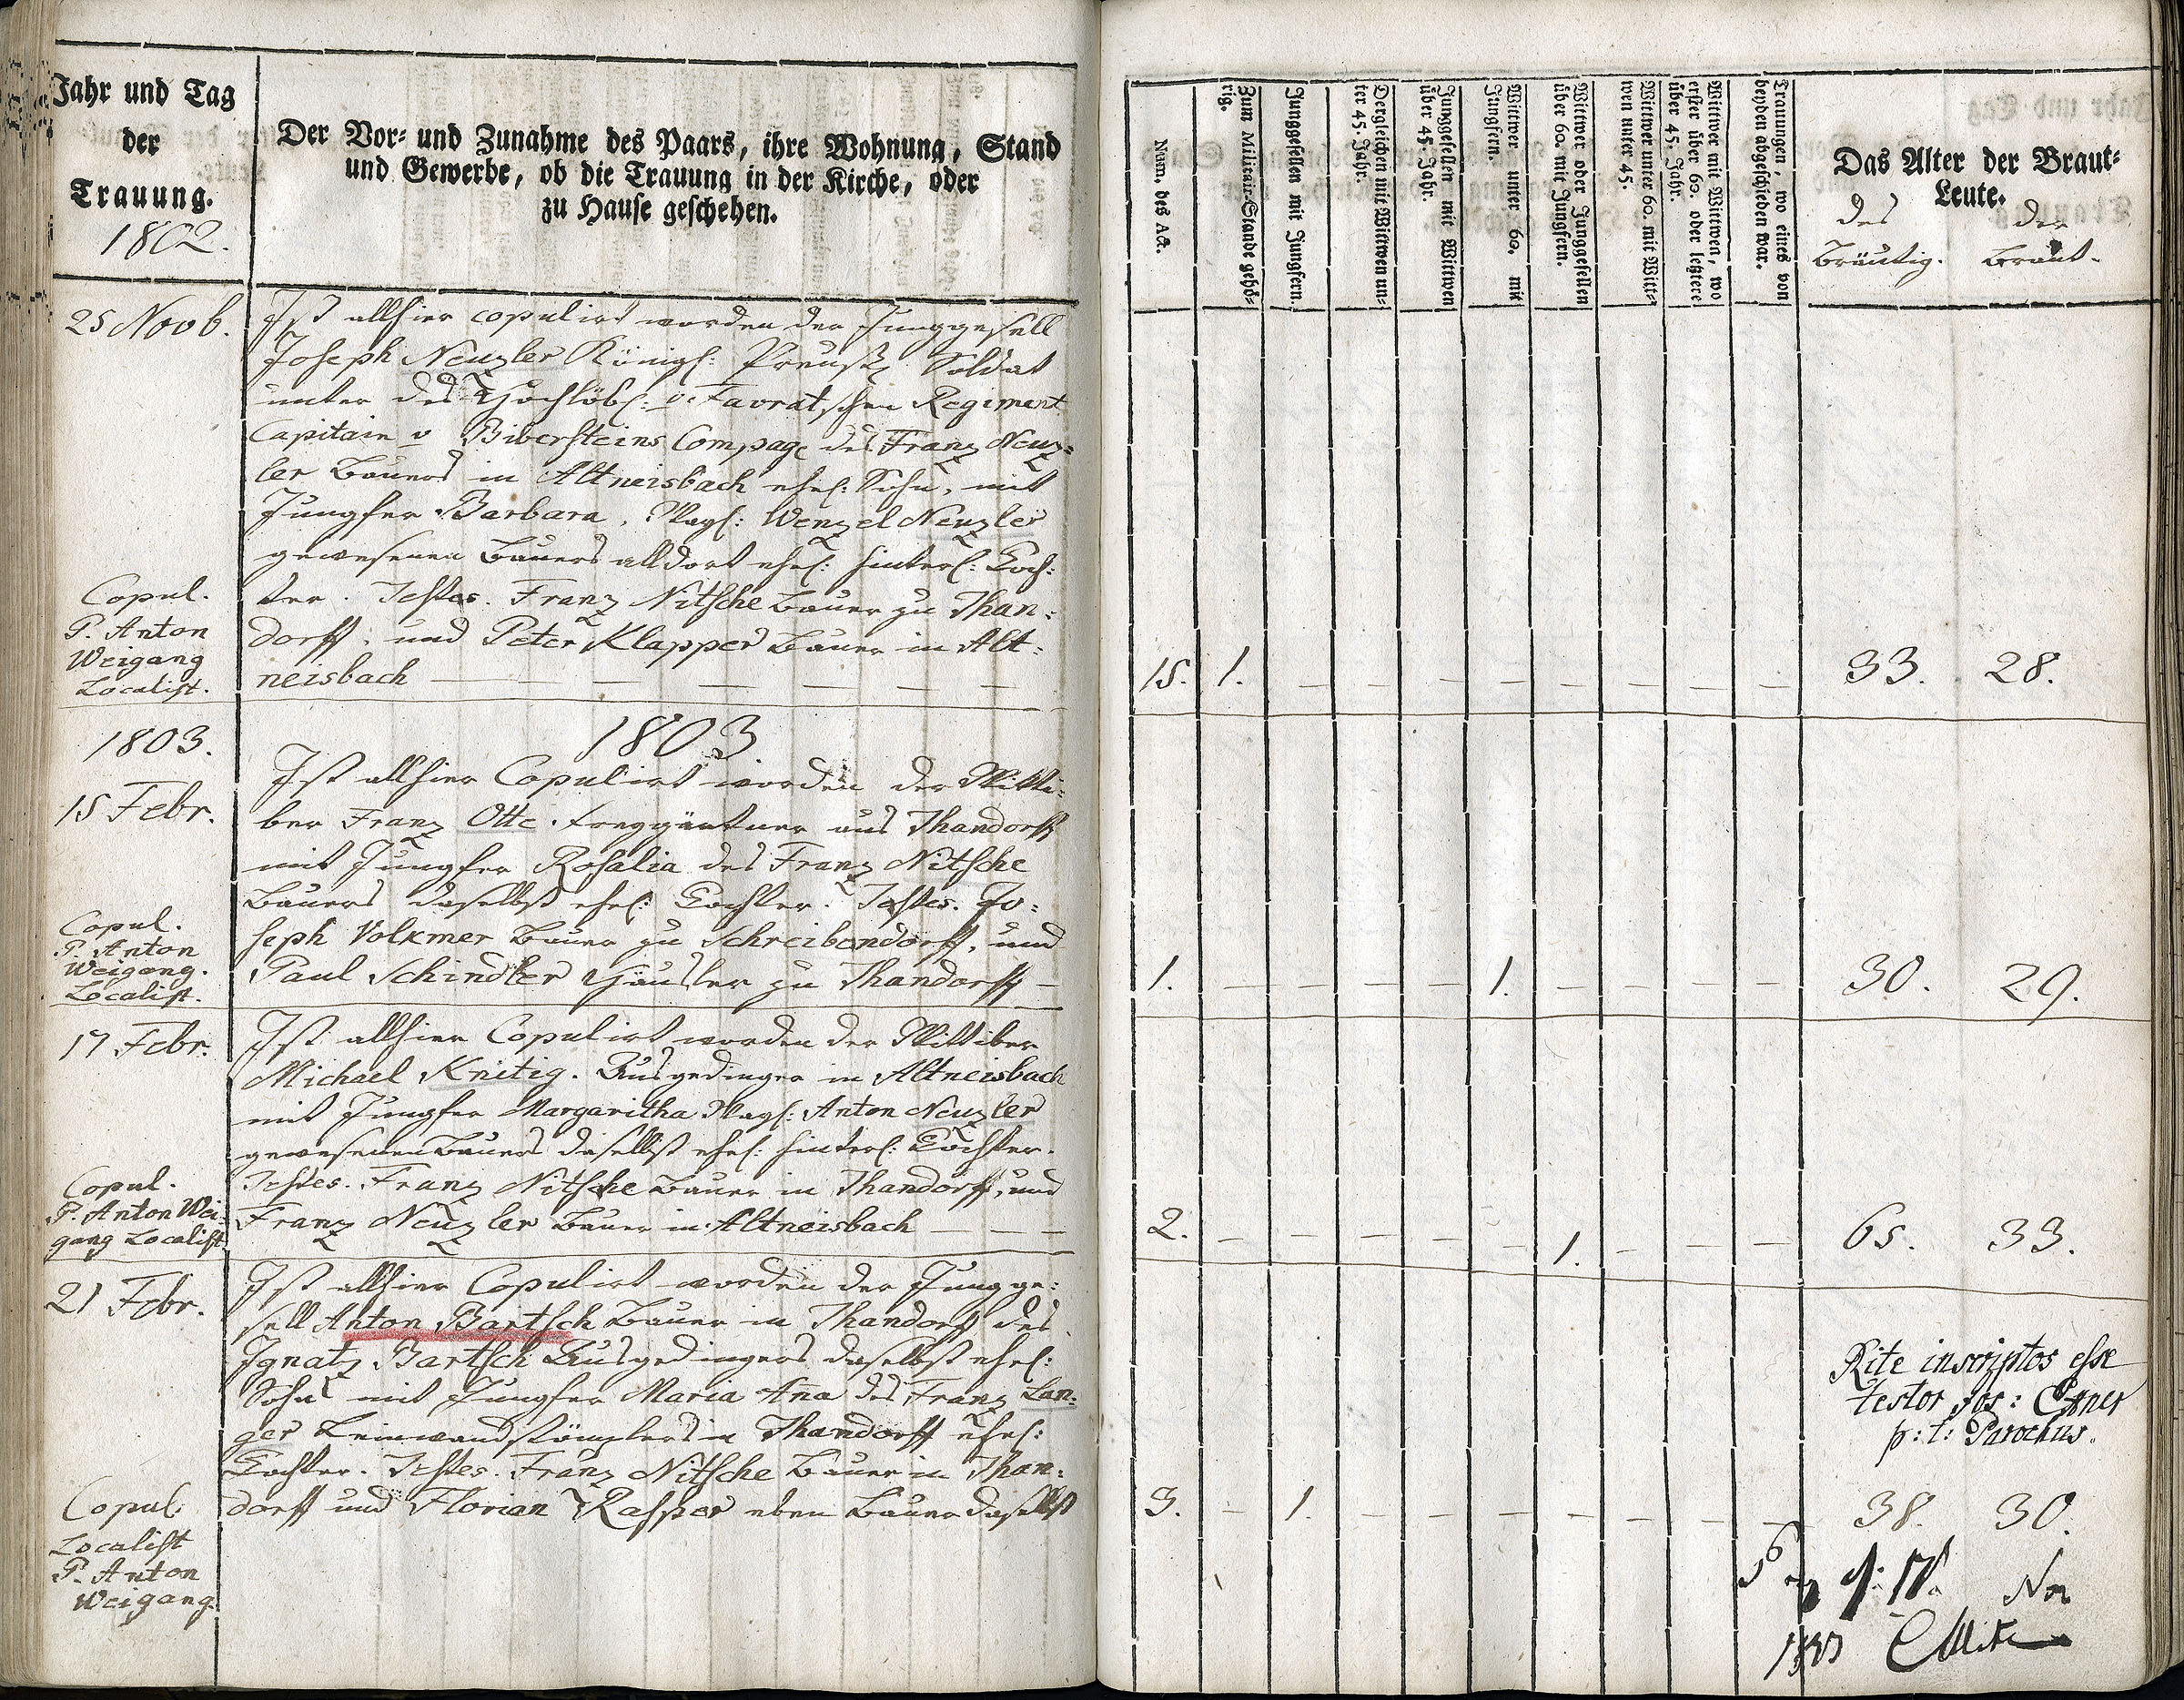 Jahr und Tag
der
Trauung.
1802.
Der Vor- und Zunahme des Paars, ihre Wohnung, Stand
und Gewerbe, ob die Trauung in der Kirche, oder
zu Hause geschehen.
25 Novb.
Ist allhier copulirt worden der Junggesell
Joseph Neuzler Königl: Preuß. Soldat
unter des Hochlöbl: v. Favratschen Regiment
Capitain v Bibersteins Compag. des Franz Neuz=
ler Bauers in Altneisbach ehel: Sohn, mit
Jungfer Barbara, Nagl: Wenzel Neuzler
gewesenen Bauers alldort ehel: hinterl: Toch:
ter. Testes. Franz Nitsche Bauer zu Than:
dorff, und Peter Klapper Bauer in Alt:
neisbach
Copul.
P. Anton
Weigang
Localist.
1803.
1803
15 Febr.
Ist allhier Copulirt worden der Witti:
ber Franz Otte. Freygärtner aus Thandorff
mit Jungfer Rosalia des Franz Nitsche
Bauers daselbst ehel: Tochter. Testes. Jo:
seph Volkmer Bauer zu Schreibendorff, und
Paul Schindler Häusler zu Thandorff
Copul.
P. Anton
Weigang.
Localist.
17 Febr.
Ist allhier Copulirt worden der Wittiber
Michael Knitig. Ausgedinger in Altneisbach
mit Jungfer Margaritha Nagl: Anton Neuzler
gewesenen Bauers daselbst ehel: hinterl: Tochter.
Testes. Franz Nitsche Bauer in Thandorff, und
Franz Neuzler Bauer in Altneisbach
Copul.
P. Anton Wei
gang Localist.
21 Febr.
Ist allhier Copulirt worden der Jungge:
sell Anton Bartsch Bauer in Thandorff des
Ignatz Bartsch Ausgedingers daselbst ehel:
Sohn mit Jungfer Maria Aña des Franz Lan:
ger in Thandorff ehel:
Tochter. Testes. Franz Nitsche Bauer in Than:
dorff und Florian Rasper eben Bauer daselbst
Copul.
Localist
P. Anton
Weigang.
Num. des Act.
Zum Militair-Stande gehö-
rig.
Junggesellen mit Jungfern.
Dergleichen mit Wittwen un-
ter 45. Jahr.
Junggesellen mit Wittwen
über 45. Jahr.
Wittwer unter 60. mit
Jungfern.
Wittwer oder Junggesellen
über 60. mit Jungfern.
Wittwer unter 60. mit Witt-
wen unter 45.
Wittwer mit Wittwen, wo
erster über 60. oder letztere
über 45. Jahr.
Trauungen, wo eines von
beyden abgeschieden war.
Das Alter der Braut-
Leute.
des der
Bräutig. Braut.
15. 1. – – – – – – – – 33. 28.
1. – – – – 1. – – – – 30. 29.
2. – – – – – 1. – – – 65. 33.
Rite inscriptos esse
testor Jos: Exner
p: t: Parochus.
3. – 1. – – – – – – – 38. 30.